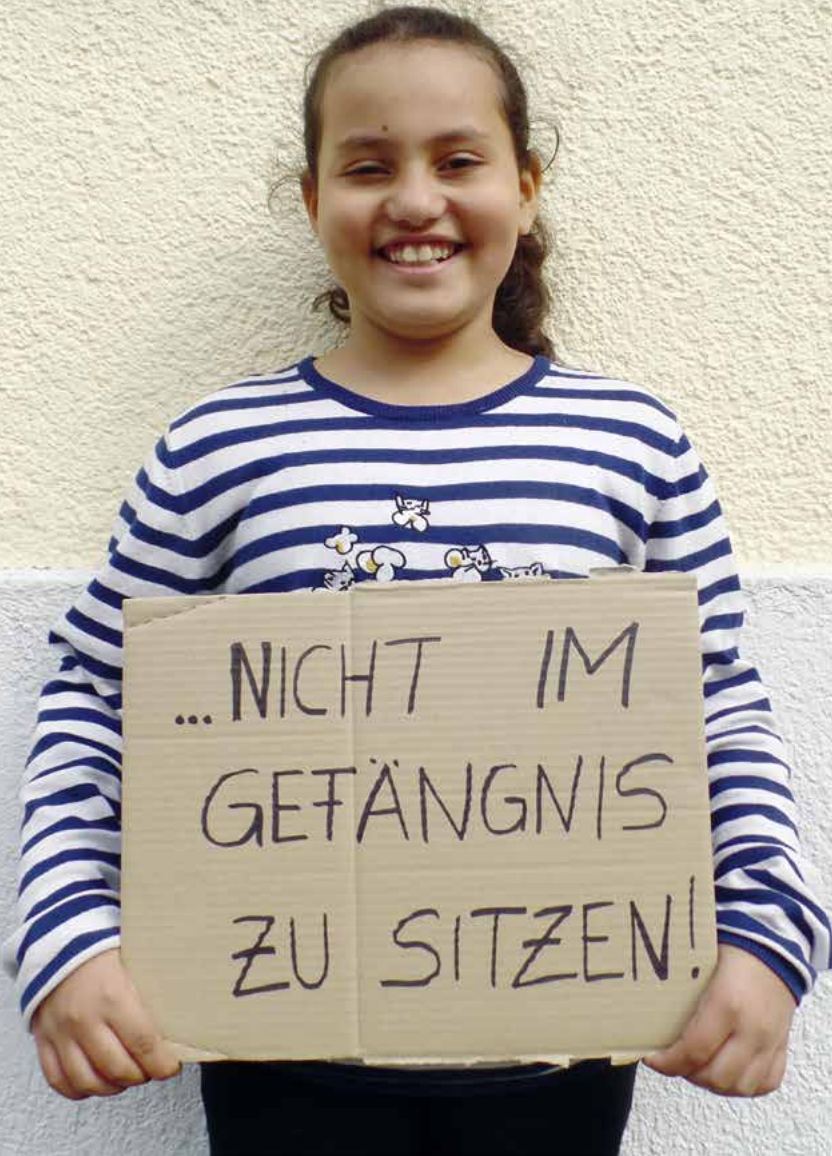 ...NICHT IM
GEFÄNGNIS
ZU SITZEN!